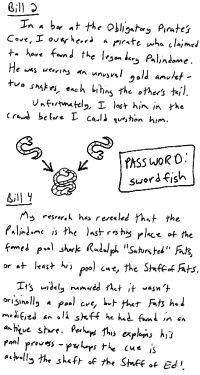 Bill 2
In a bar at the Obligatory Pirate's
Cove, I overheard a pirate who claimed
to have found the legendary Palindome.
He was wearing an unusual gold amulet-
two snakes, each biting the other's tail.
Unfortunately, I lost him in the
crowd before I could question him.
PASSWORD:
swordfish
Bill 4
My research has revealed that the
Palindome is the last resting place of the
famed pool shark Rudolph "Saturated" Fats,
or at least his pool cue, the Staff of Fats.
It's widely rumored that it wasn't
originally a pool cue, but that Fats had
modified an old staff he had found in an
antique store. Perhaps this explains his
pool prowess - perhaps the cue is
actually the shaft of the Staff of Ed!